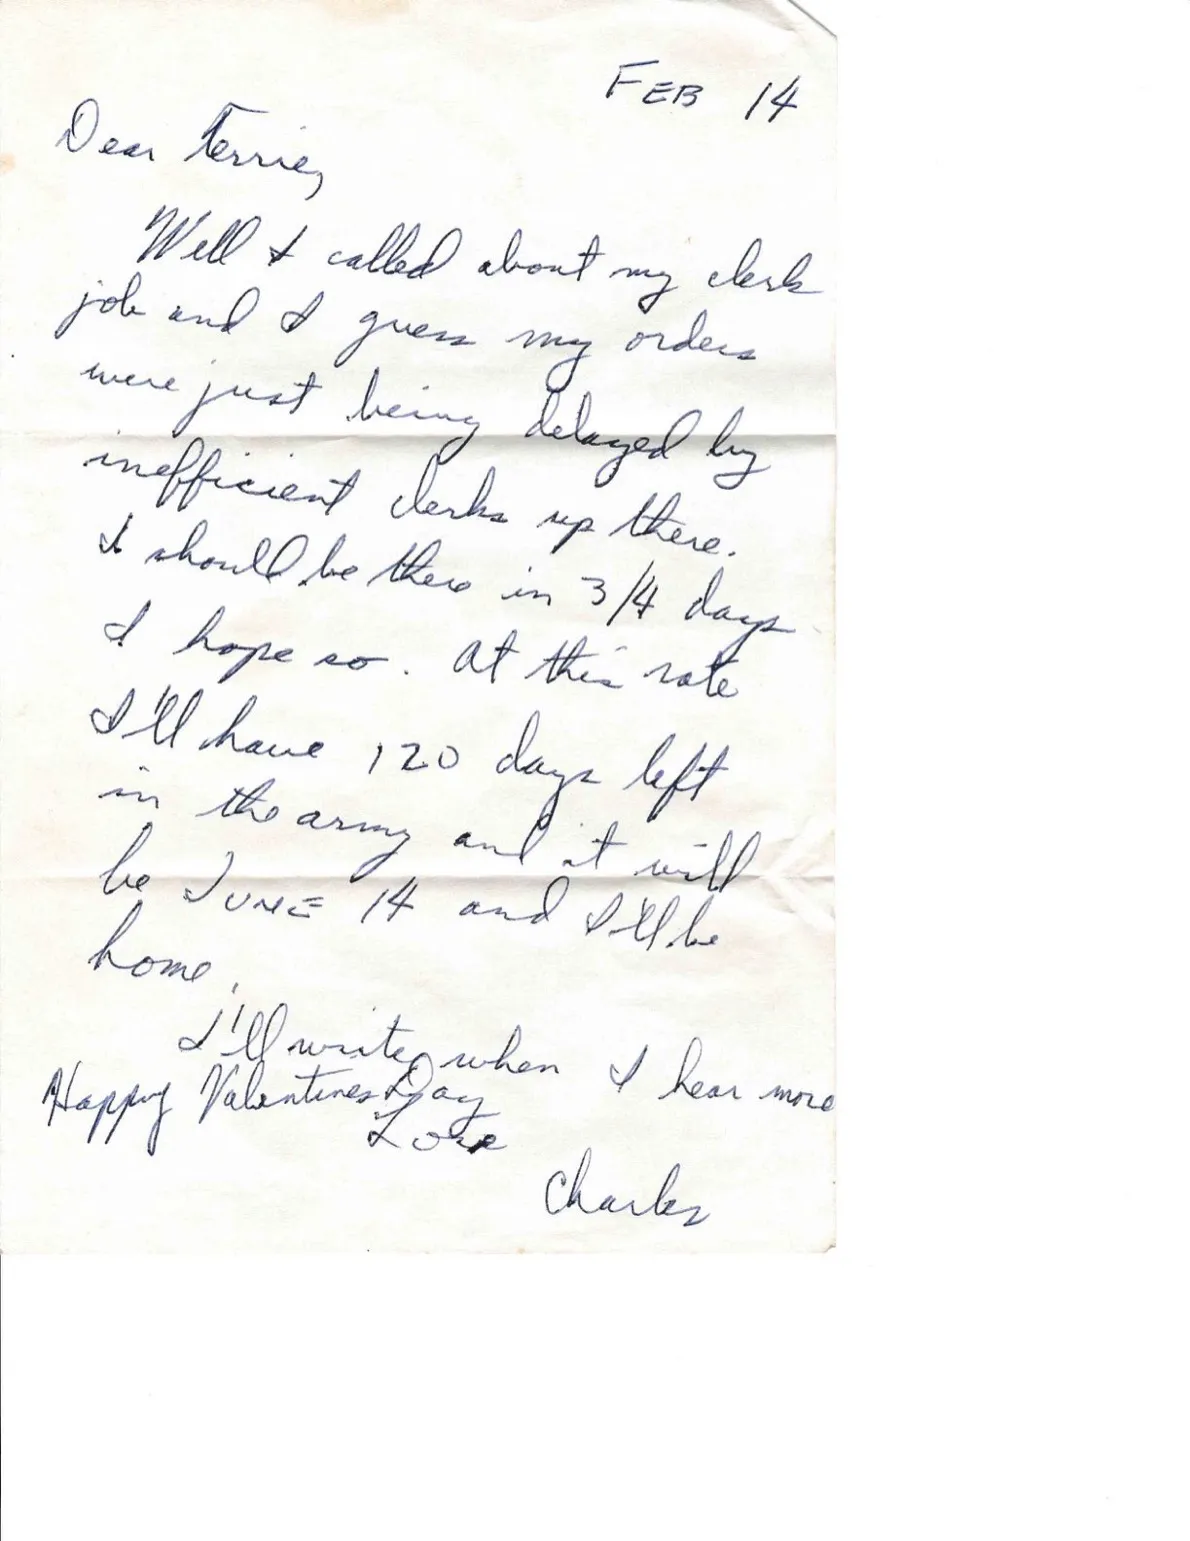 FEB 14
Dear Terrie,
Well I called about my clerk
job and I guess my orders
were just being delayed by
inefficient clerks up there.
I should be there in 3/4 days
I hope so. At this rate
I'll have 120 days left
in the army and it will
be JUNE 14 and I'll be
home.
I'll write when I hear more
Happy Valentines Day
Love
Charles